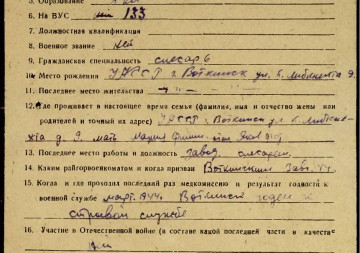 5. Образование
6. На ВУС № 133
7. Должностная квалификация
8. Военное звание нет
9. Гражданская специальность слесарь
10. Место рождения УАССР г. Воткинск ул. К. Либкнехта 9.
11. Последнее место жительства — " —
12. Где проживает в настоящее время семья (фамилия, имя и отчество жены или
родителей и точный их адрес) УАССР г Воткинск ул К. Либкне-
хта д. 9. мать Мария
13. Последнее место работы и должность завод, слесарем
14. Каким райгорвоенкоматом и когда призван Воткинским
15. Когда и где проходил последний раз медкомиссию и результат годности к
военной службе март 1944. Воткинск годен к
строевой службе
16. Участие в Отечественной войне (в составе какой последней части и в качестве